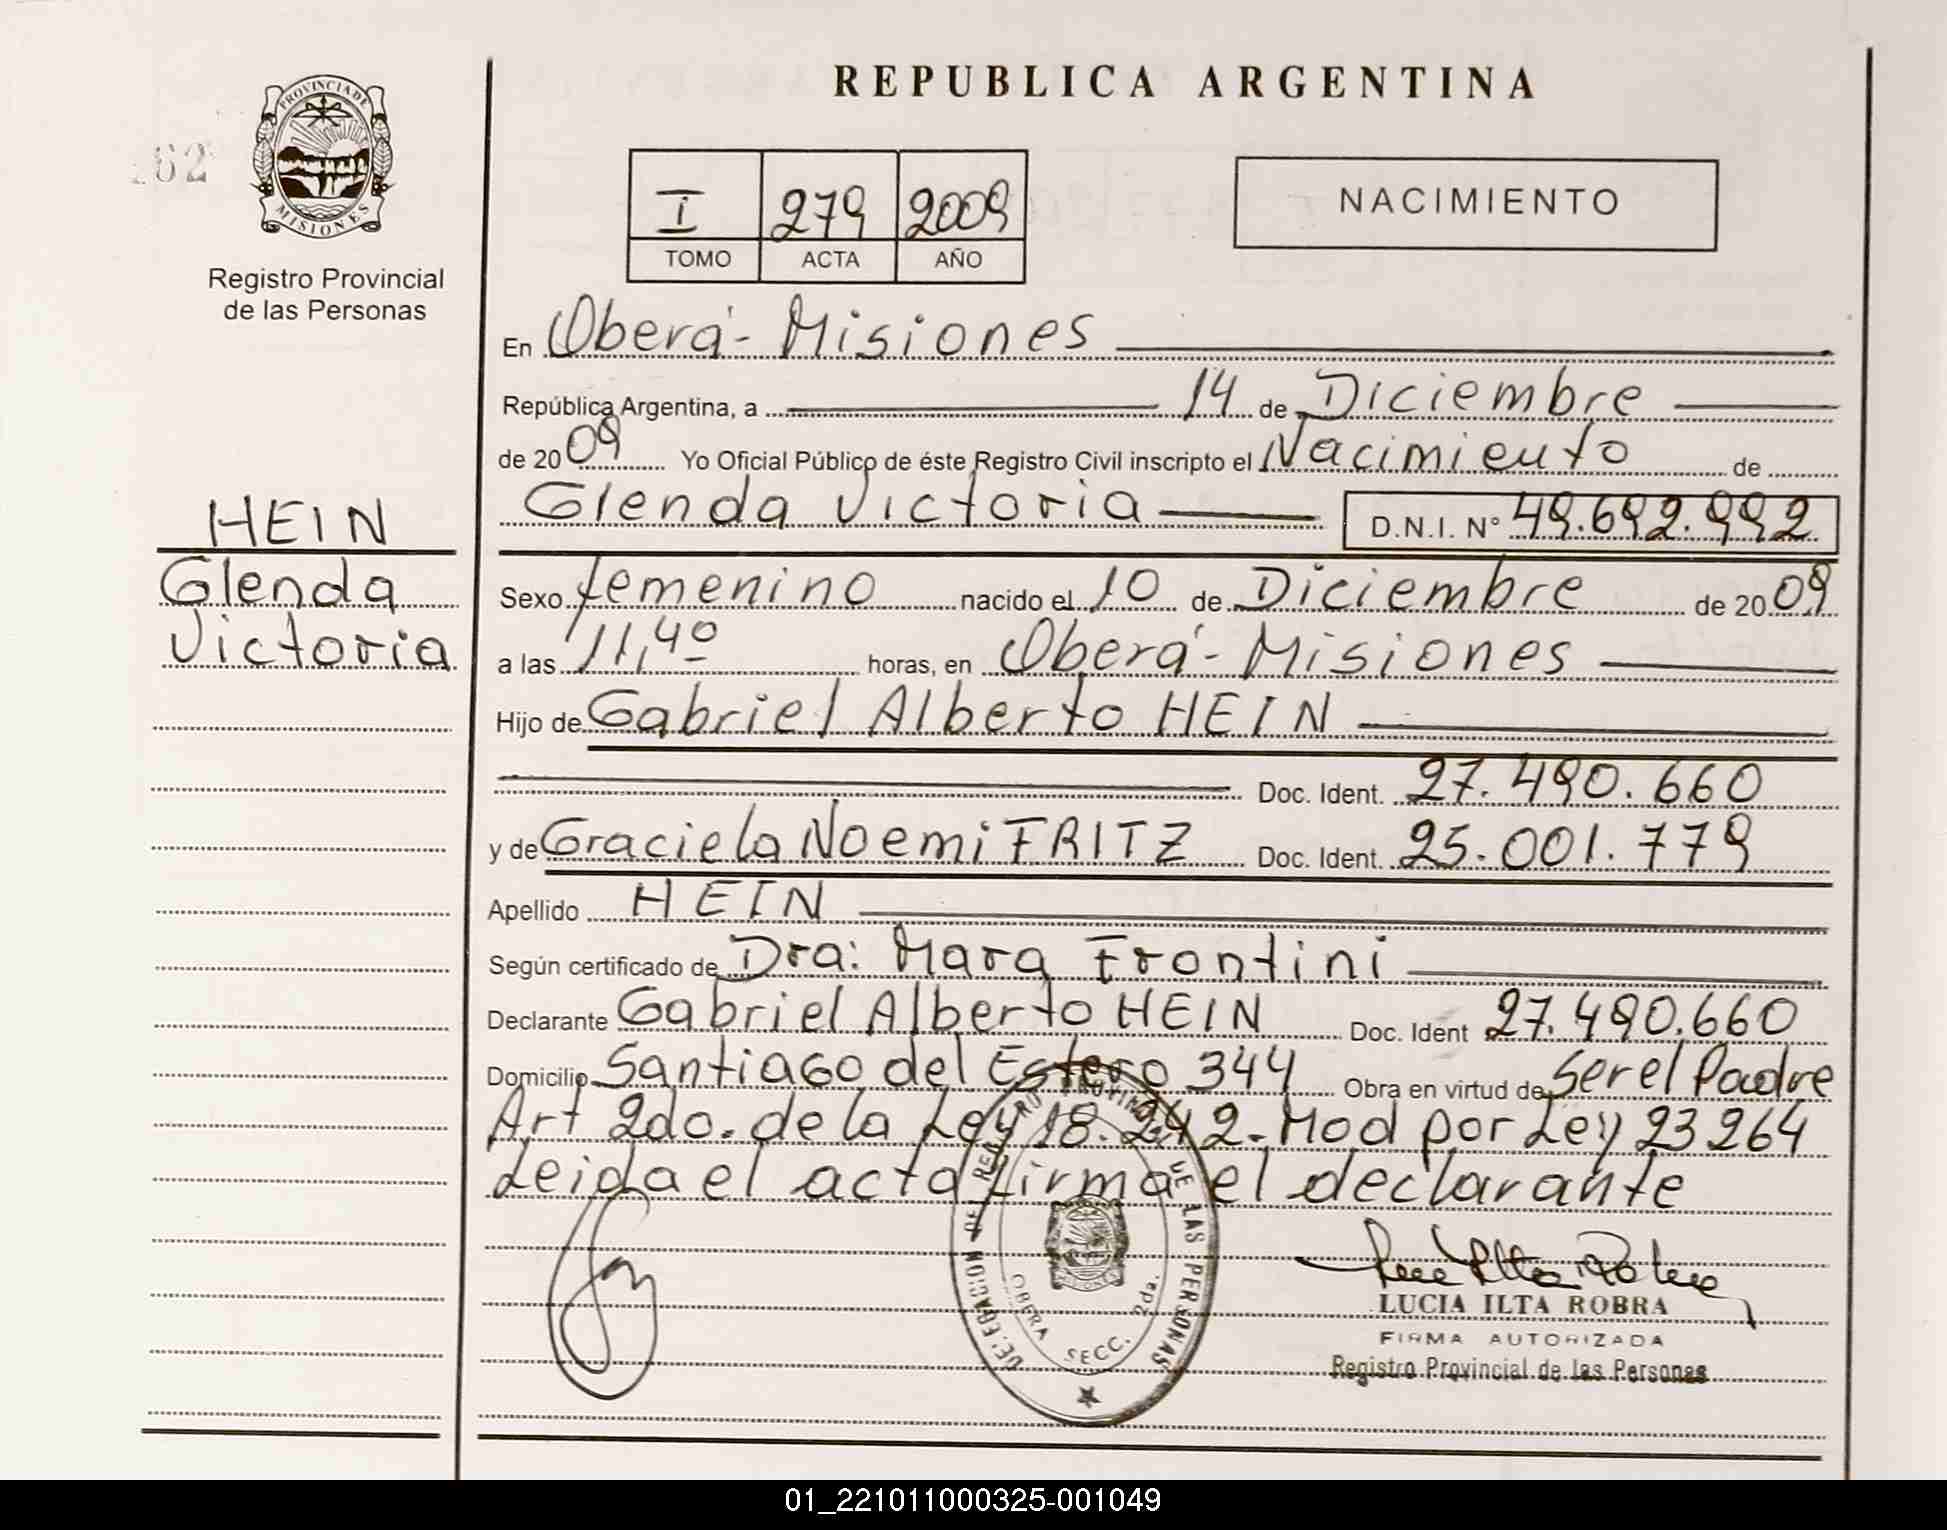 REPUBLICA ARGENTINA
62
PROVINCIA DE
MISIONES
Registro Provincial
de las Personas
I 279 2009
TOMO ACTA AÑO
NACIMIENTO
En Oberá - Misiones
República Argentina, a 14 de Diciembre
de 2009 Yo Oficial Público de éste Registro Civil inscripto el Nacimiento de
Glenda Victoria D.N.I. N° 49.692.992
HEIN
Glenda
Victoria
Sexo femenino nacido el 10 de Diciembre de 2009
a las 11,40 horas, en Oberá - Misiones
Hijo de Gabriel Alberto HEIN
Doc. Ident. 27.490.660
y de Graciela Noemi FRITZ Doc. Ident. 25.001.779
Apellido HEIN
Según certificado de Dra: Mara Frontini
Declarante Gabriel Alberto HEIN Doc. Ident 27.490.660
Domicilio Santiago del Estero 344 Obra en virtud de Ser el Padre
Art 2do. de la Ley 18.242 - Mod por Ley 23264
Leida el acta firma el declarante
DELEGACION DE REGISTRO PROVINCIAL DE LAS PERSONAS
OBERA SECC. 2da.
LUCIA ILTA ROBRA
FIRMA AUTORIZADA
Registro Provincial de las Personas
01_221011000325-001049